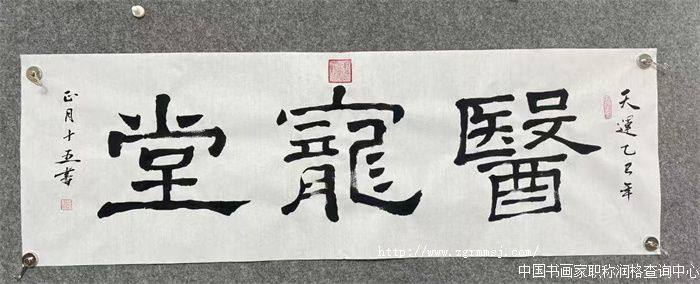 天運乙巳年
醫寵堂
正月十五書
http://www.zgrmmsj.com/
中国书画家职称润格查询中心